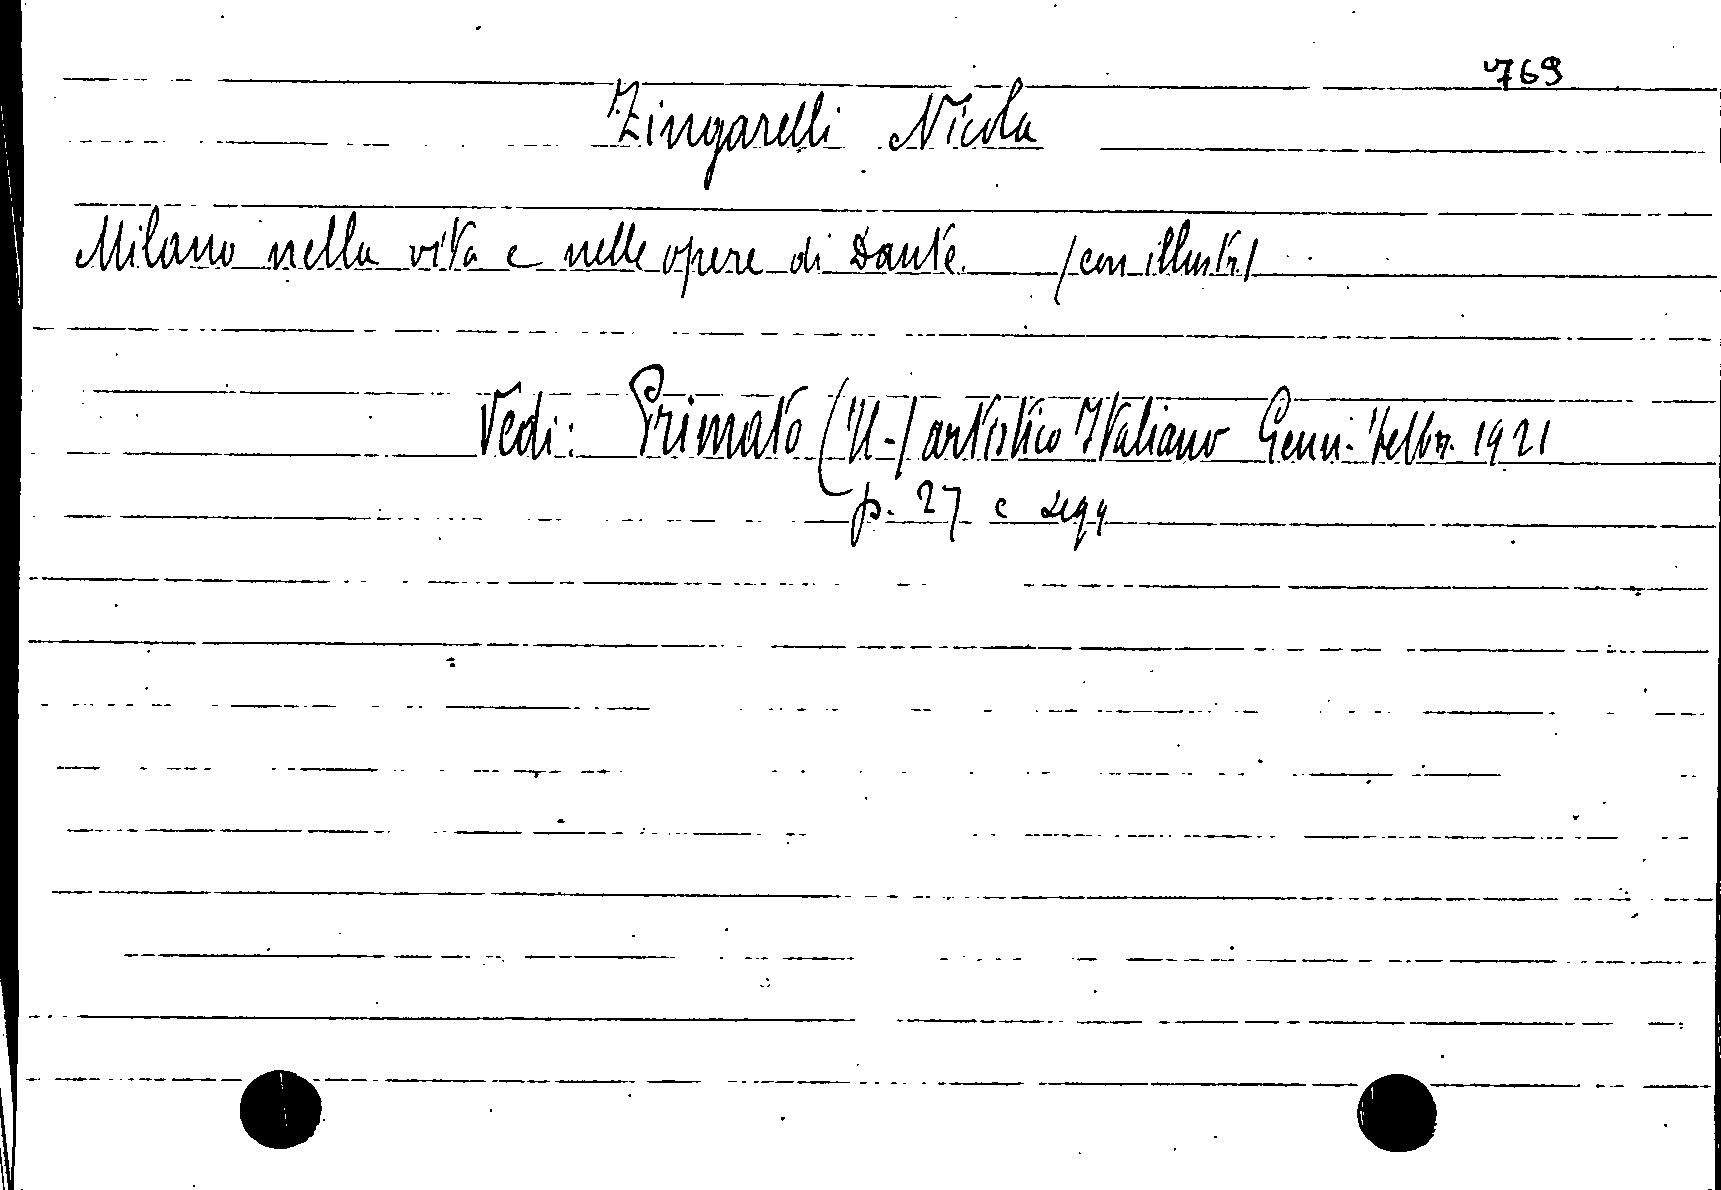 769
Zingarelli Nicola
Milano nella vita e nelle opere di Dante. /con illustr./
Vedi: Primato (Il-) artistico Italiano Genn.-Febbr. 1921
p. 27 e segg